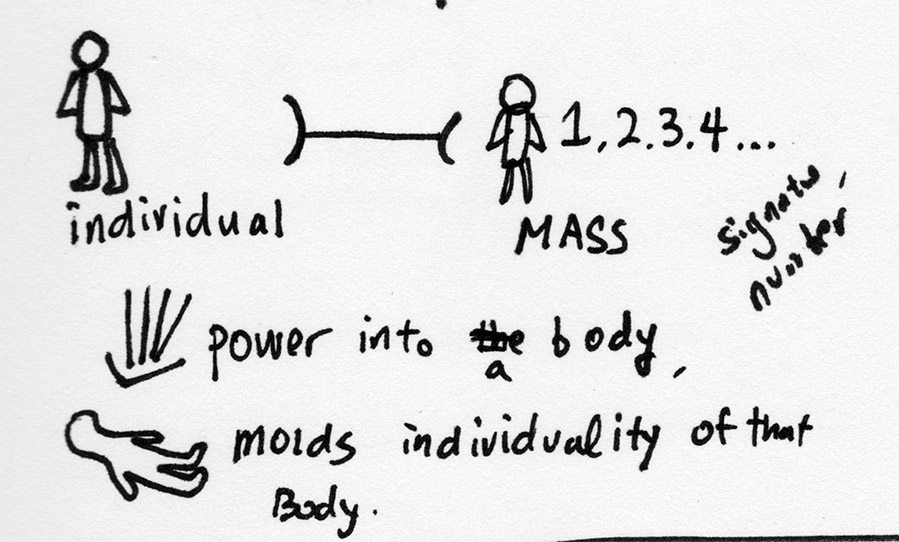 1, 2. 3. 4 ...
individual
MASS
signatu,
number
power into the body,
a
molds individuality of that
Body.